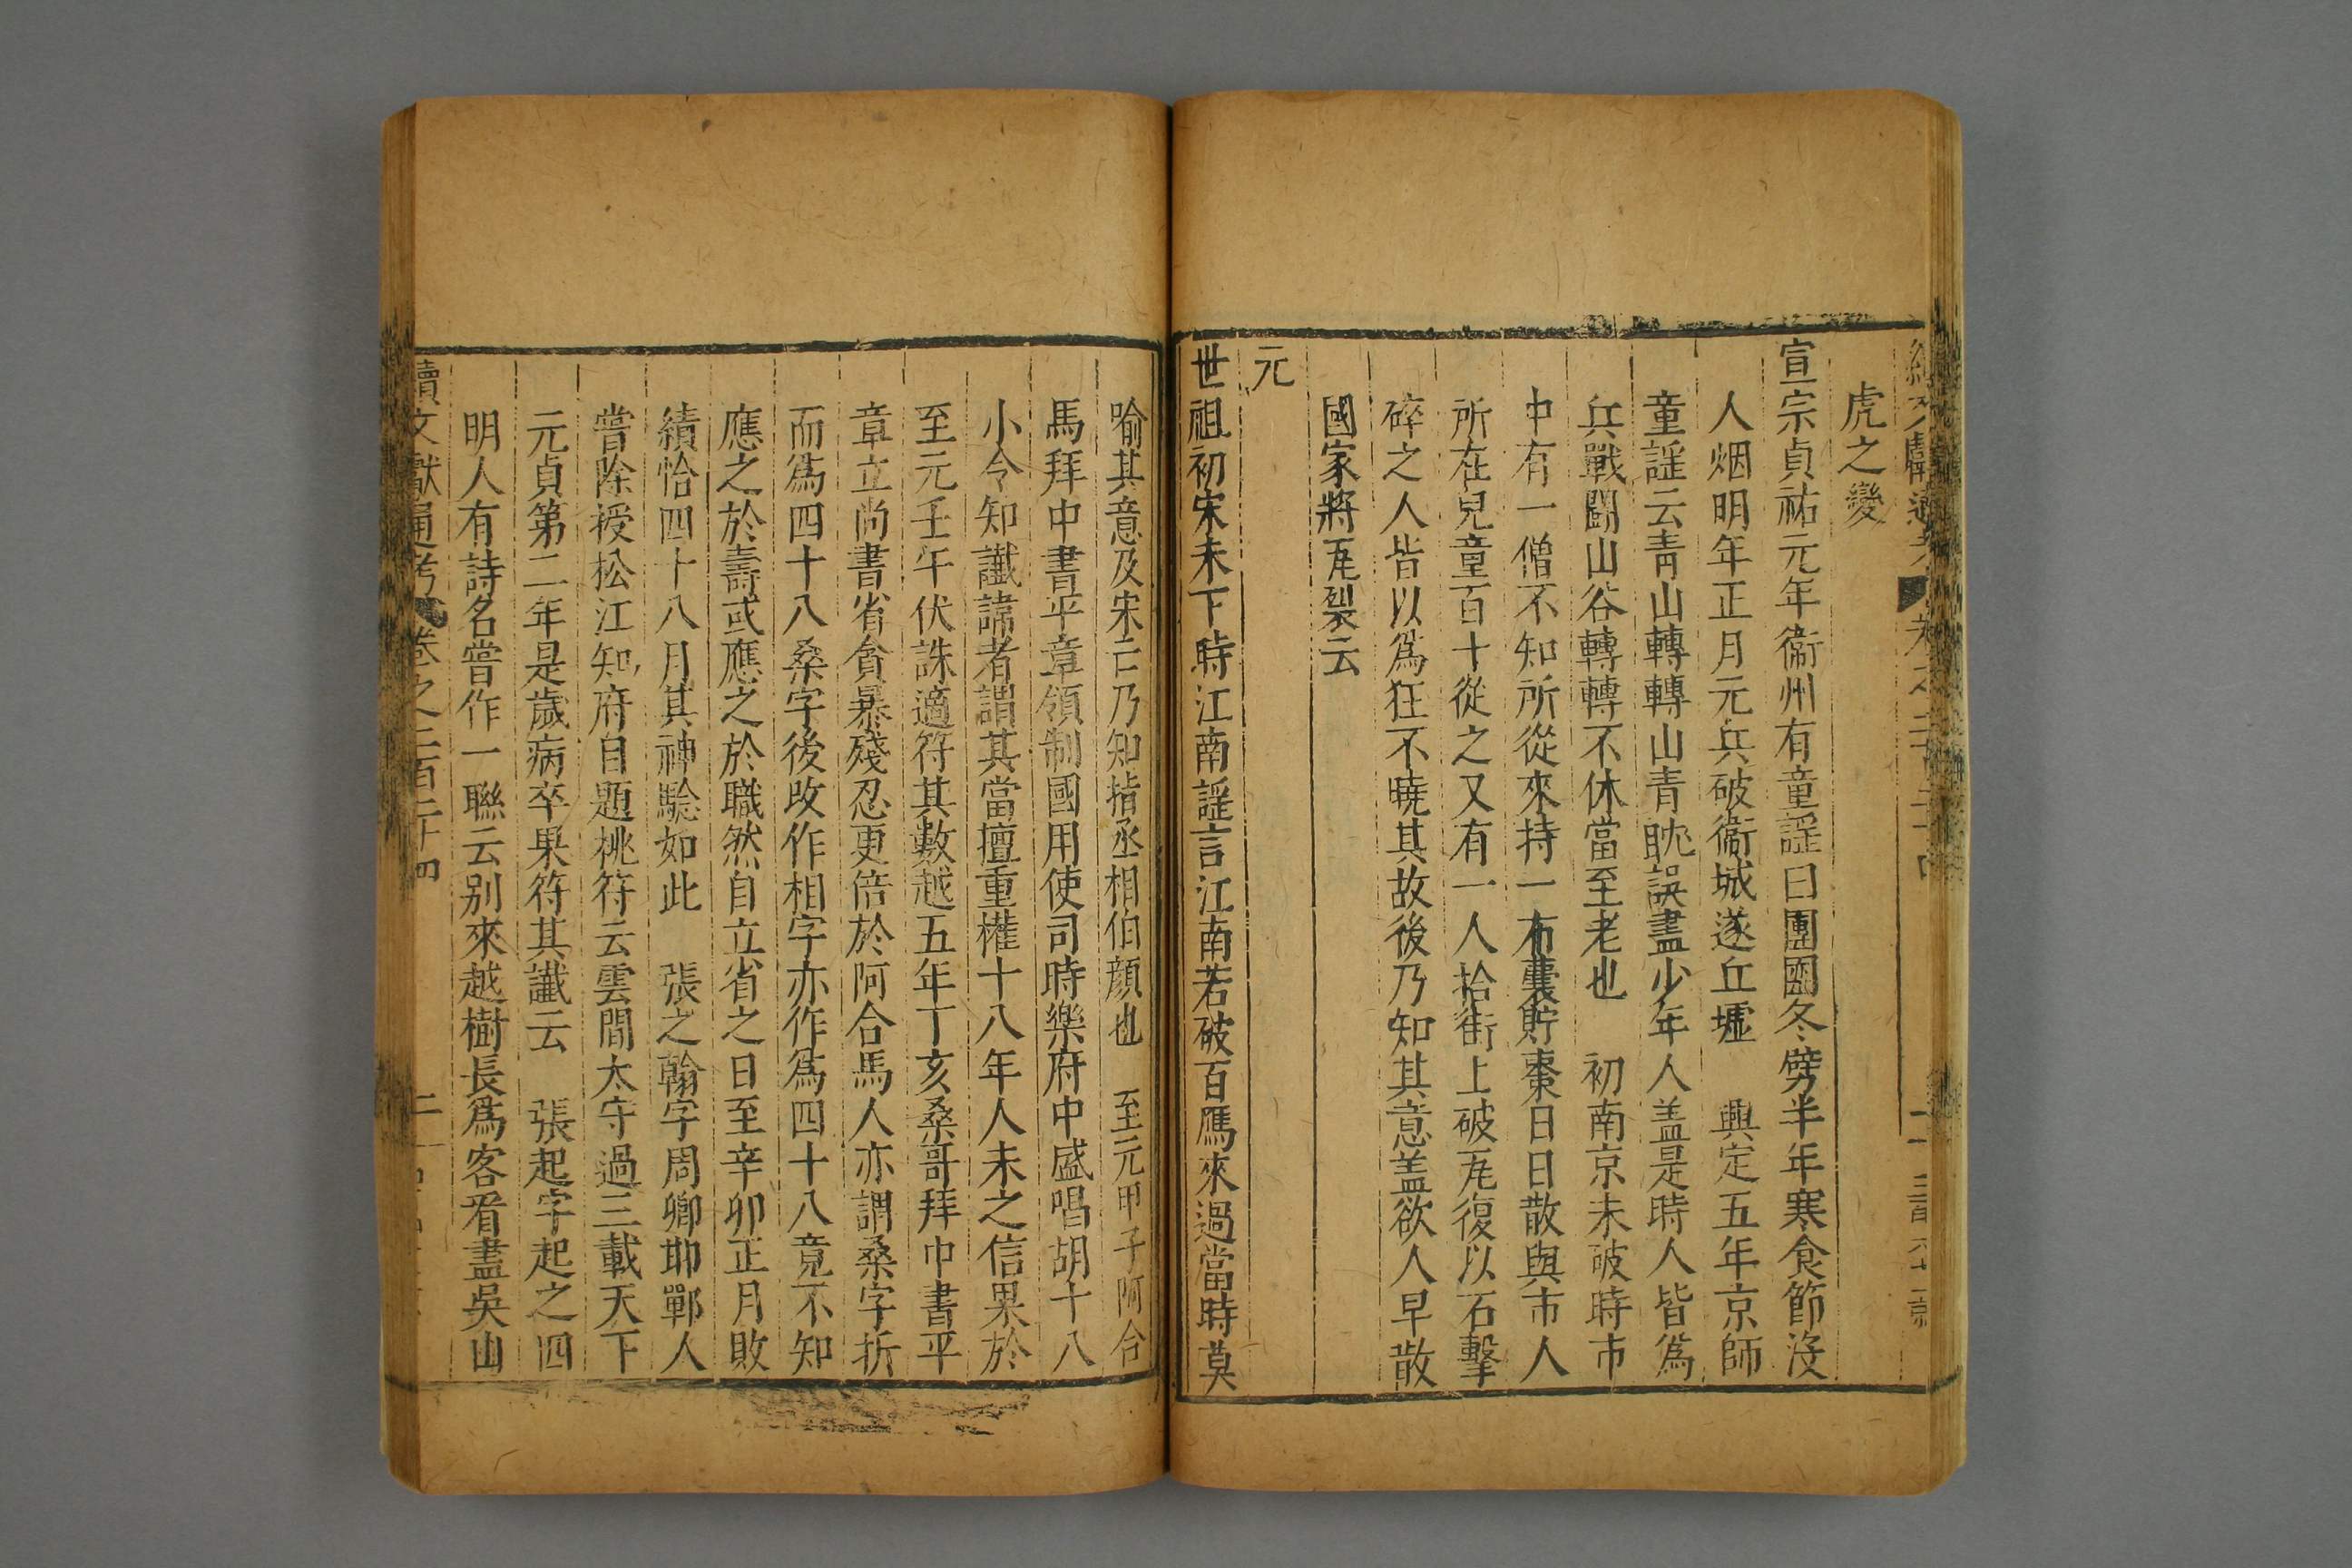 虎之變
宣宗貞祐元年衞州有童謡曰團圞冬劈半年寒食節没
人烟明年正月元兵破衞城遂丘墟　興定五年京師
童謡云青山轉轉山青眈誤盡少年人盖是時人皆爲
兵戰鬪山谷轉轉不休當至老也　初南京未破時市
中有一僧不知所從來持一布囊貯棗日日散與市人
所在兒童百十從之又有一人拾街上破瓦復以石擊
碎之人皆以爲狂不曉其故後乃知其意盖欲人早散
國家將瓦裂云
元
世祖初宋未下時江南謡言江南若破百鴈來過當時莫
喻其意及宋亡乃知指丞相伯顔也　至元甲子阿合
馬拜中書平章領制國用使司時樂府中盛唱胡十八
小令知讖諱者謂其當擅重權十八年人未之信果於
至元壬午伏誅適符其數越五年丁亥桑哥拜中書平
章立尚書省貪暴殘忍更倍於阿合馬人亦謂桑字折
而爲四十八桑字後改作相字亦作爲四十八竟不知
應之於壽或應之於職然自立省之日至辛卯正月敗
績恰四十八月其神驗如此　張之翰字周卿邯鄲人
嘗除授松江知府自題桃符云雲間太守過三載天下
元貞第二年是歲病卒果符其讖云　張起字起之四
明人有詩名嘗作一聯云别來越樹長爲客看盡吳山
續文獻通考 卷之二百二十四